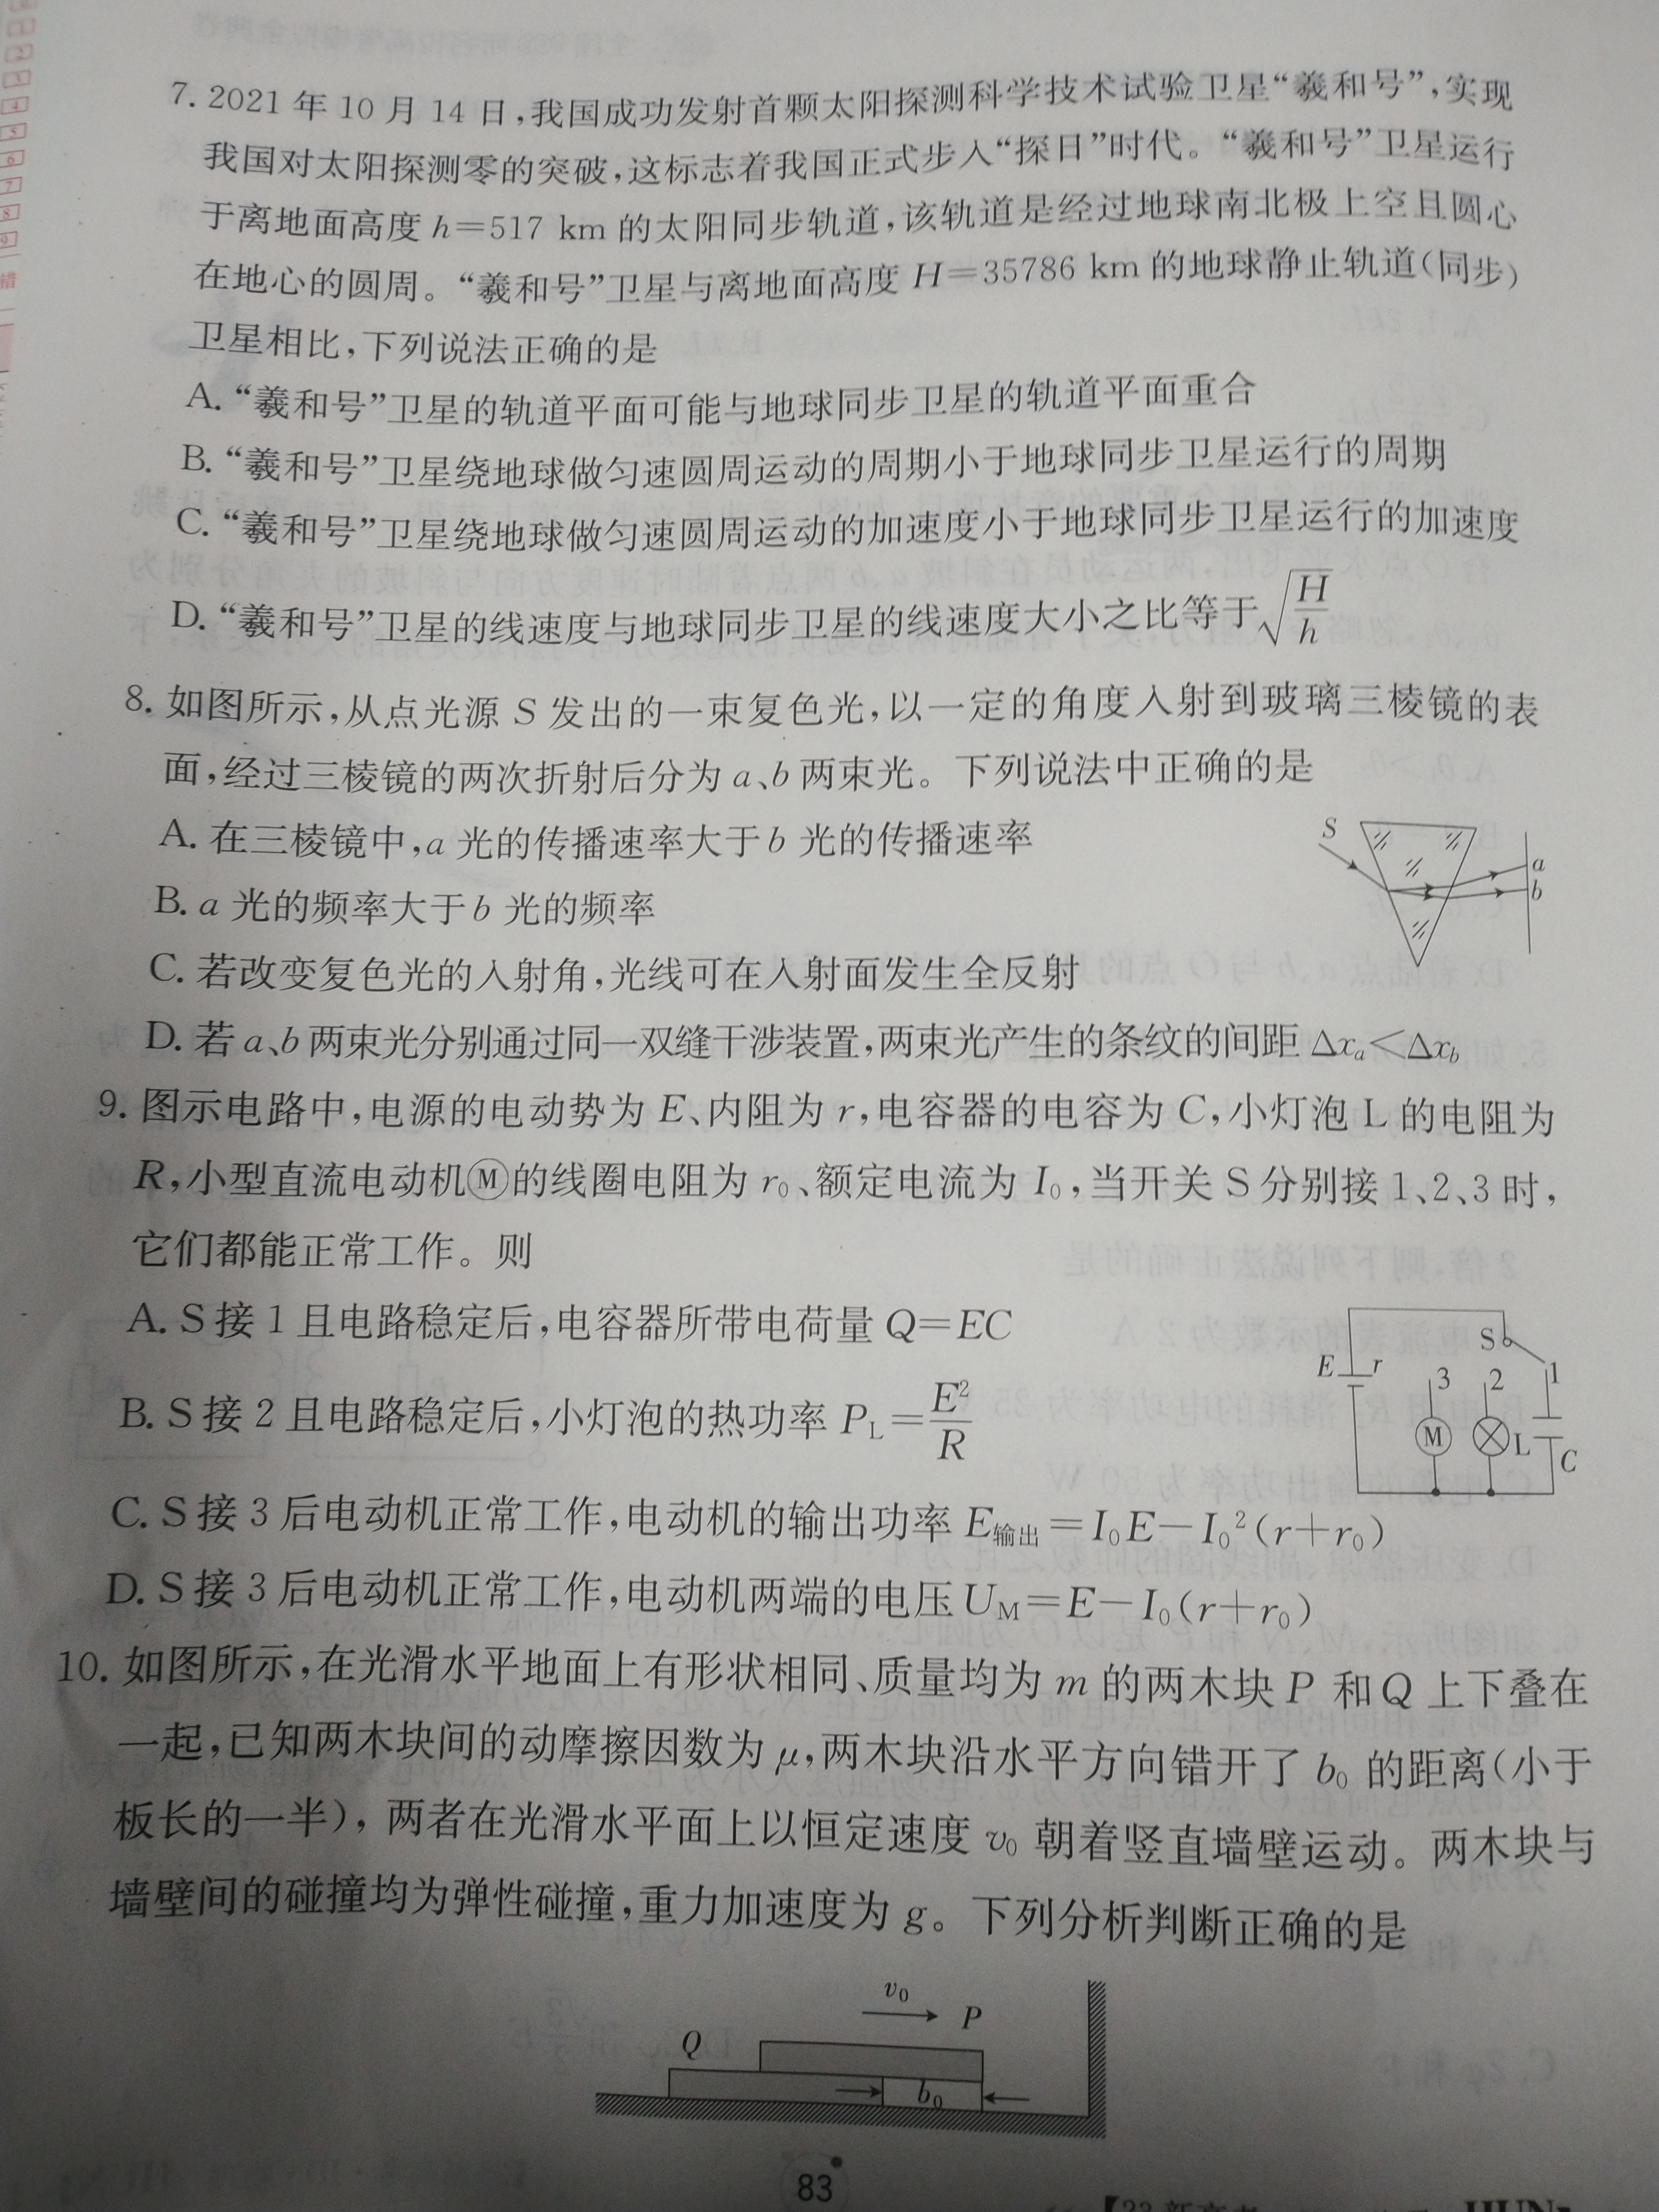 7. 2021 年 10 月 14 日,我国成功发射首颗太阳探测科学技术试验卫星“羲和号”,实现
我国对太阳探测零的突破,这标志着我国正式步入“探日”时代。“羲和号”卫星运行
于离地面高度 h=517 km 的太阳同步轨道,该轨道是经过地球南北极上空且圆心
在地心的圆周。“羲和号”卫星与离地面高度 H=35786 km 的地球静止轨道(同步)
卫星相比,下列说法正确的是
A. “羲和号”卫星的轨道平面可能与地球同步卫星的轨道平面重合
B. “羲和号”卫星绕地球做匀速圆周运动的周期小于地球同步卫星运行的周期
C. “羲和号”卫星绕地球做匀速圆周运动的加速度小于地球同步卫星运行的加速度
D. “羲和号”卫星的线速度与地球同步卫星的线速度大小之比等于√(H/h)
8. 如图所示,从点光源 S 发出的一束复色光,以一定的角度入射到玻璃三棱镜的表
面,经过三棱镜的两次折射后分为 a、b 两束光。下列说法中正确的是
A. 在三棱镜中,a 光的传播速率大于 b 光的传播速率
B. a 光的频率大于 b 光的频率
C. 若改变复色光的入射角,光线可在入射面发生全反射
D. 若 a、b 两束光分别通过同一双缝干涉装置,两束光产生的条纹的间距 Δxₐ<Δx_b
S
a
b
9. 图示电路中,电源的电动势为 E、内阻为 r,电容器的电容为 C,小灯泡 L 的电阻为
R,小型直流电动机Ⓜ的线圈电阻为 r₀、额定电流为 I₀,当开关 S 分别接 1、2、3 时,
它们都能正常工作。则
A. S 接 1 且电路稳定后,电容器所带电荷量 Q=EC
B. S 接 2 且电路稳定后,小灯泡的热功率 P_L=E²/R
C. S 接 3 后电动机正常工作,电动机的输出功率 E输出=I₀E−I₀²(r+r₀)
D. S 接 3 后电动机正常工作,电动机两端的电压 U_M=E−I₀(r+r₀)
S
E r 3 2 1
M L C
10. 如图所示,在光滑水平地面上有形状相同、质量均为 m 的两木块 P 和 Q 上下叠在
一起,已知两木块间的动摩擦因数为 μ,两木块沿水平方向错开了 b₀ 的距离(小于
板长的一半),两者在光滑水平面上以恒定速度 v₀ 朝着竖直墙壁运动。两木块与
墙壁间的碰撞均为弹性碰撞,重力加速度为 g。下列分析判断正确的是
v₀
P
Q
b₀
83